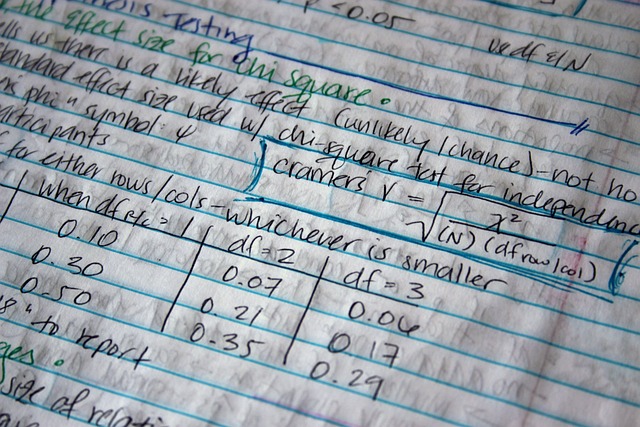 p < 0.05
Testing
use df & N
effect size for chi square.
us there is a likely effect (unlikely/chance) - not
standard effect size used w/ chi-square test for independence
phi" symbol: φ
cramers V = √ x² / (N)(df row/col)
participants
for either rows/cols - whichever is smaller
when df r/c = 1 df = 2 df = 3
0.10 0.07 0.06
0.30 0.21 0.17
0.50 0.35 0.29
" to report
size of